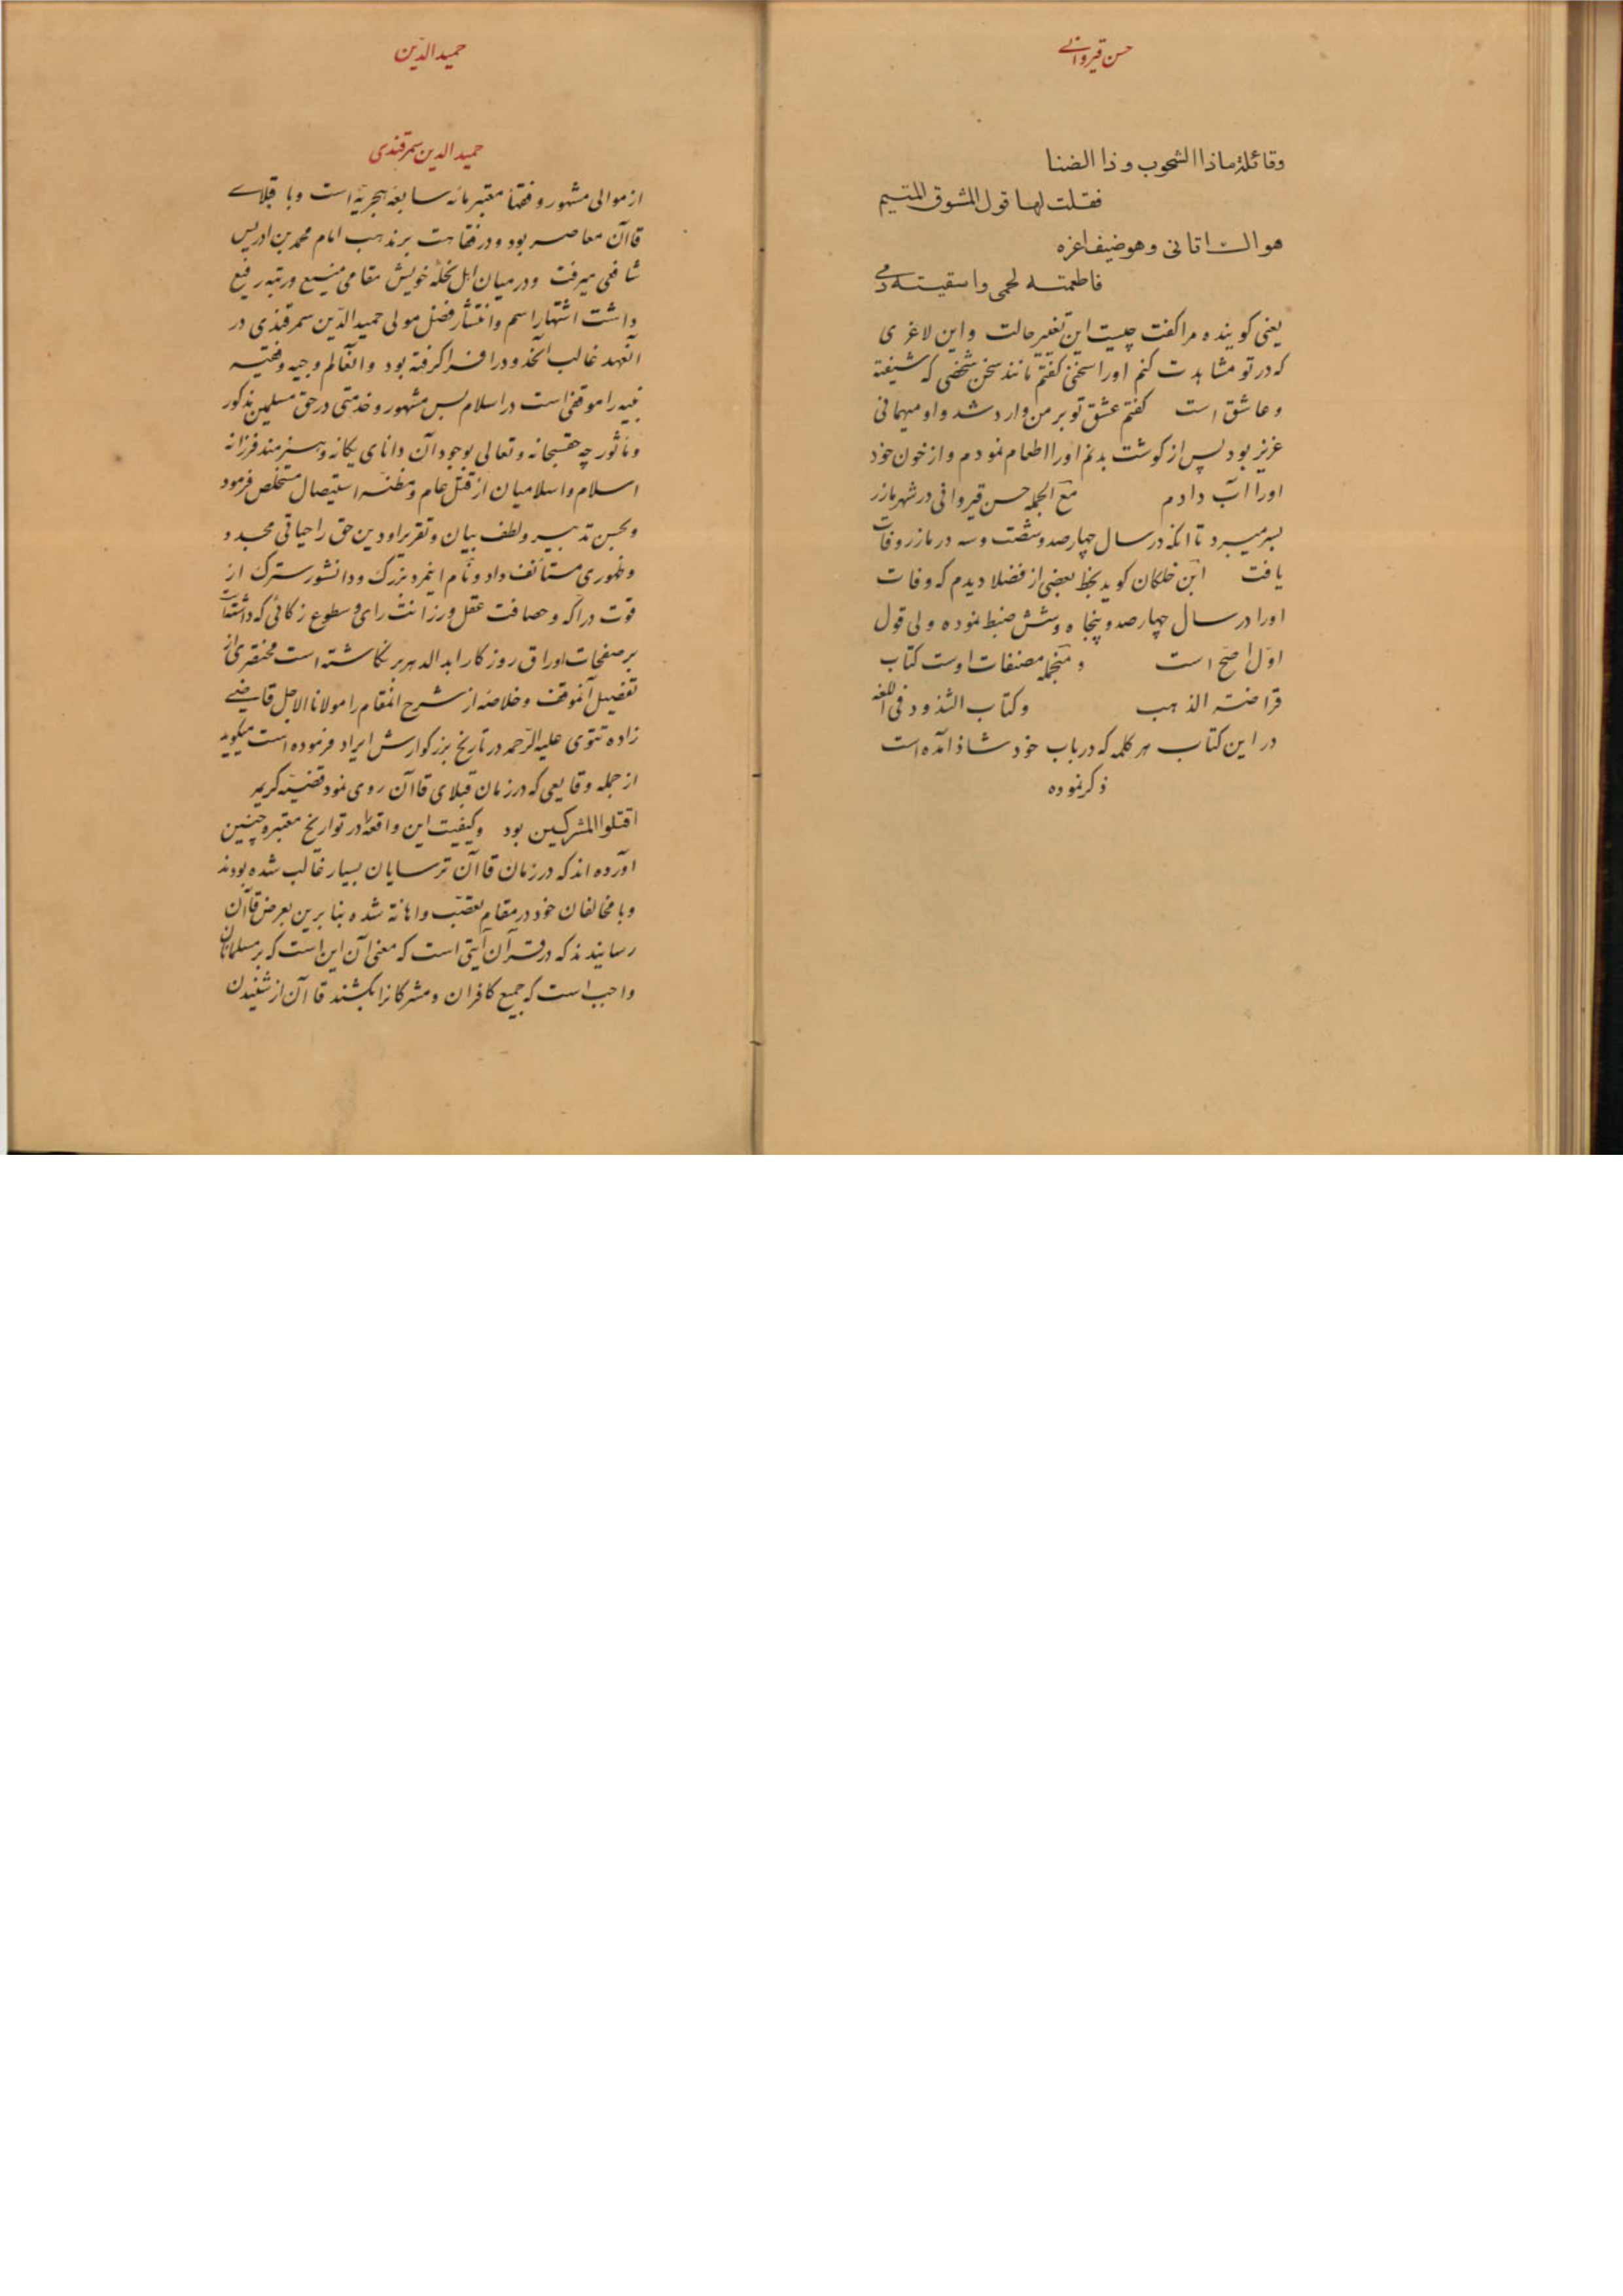 حسن قیروانے
وقائلة ماذا الشحوب و ذا الضنا
فقلت لها قول المشوق المتیم
هواك اتانی وهو ضیف اعزه
فاطعمته لحمی واسقیته دمے
یعنی کوینده مرا کفت چیست این تغیر حالت و این لاغری
که در تو مشاهدت کنم اورا سخنی کفتم مانند سخن شخصی که شیفته
و عاشق است کفتم عشق تو بر من وارد شد و او میهمانی
عزیز بود پس از کوشت بدنم اورا اطعام نمودم و از خون خود
اورا آب دادم مع الجمله حسن قیروانی در شهر مازر
بسر میبرد تا انکه در سال چهارصد و شصت و سه در مازر وفات
یافت ابن خلکان کوید بخط بعضی از فضلا دیدم که وفات
اورا در سال چهارصد و پنجاه و شش ضبط نموده ولی قول
اوّل اصحّ است و منجمله مصنفات اوست کتاب
قراضة الذهب و کتاب الشذوذ فی اللغه
در این کتاب هر کلمه که در باب خود شاذ آمده است
ذکر نموده
حمید الدّین
حمید الدین سمرقندی
از موالی مشهور و فقهاء معتبر مائه سابعه هجریّه است و با قبلاے
قاآن معاصر بود و در فقاهت بر مذهب امام محمد بن ادریس
شافعی میرفت و در میان اهل نحله خویش مقامی منیع و رتبه رفیع
داشت اشتهار اسم و انتشار فضل مولی حمید الدّین سمرقندی در
آنعهد غالب آنحدود را فرا کرفته بود و آنعالم وجیه و فقیه
نبیه را موقفی است در اسلام بس مشهور و خدمتی در حق مسلمین مذکور
و مأثور چه حقسبحانه و تعالی بوجود آن دانای یکانه و هنرمند فرزانه
اسلام و اسلامیان از قتل عام و مظنه استیصال مستخلص فرمود
و بحسن تدبیر و لطف بیان و تقریر او دین حق را حیاتی مجدد و
و ظهوری مستأنف داد و نام اینمرد بزرک و دانشور سترک از
قوت درّاکه و حصافت عقل و رزانت رای و سطوع زکائی که داشت
بر صفحات اوراق روزکار ابد الدهر بر نکاشته است مختصری از
تفصیل آنموقف و خلاصه از شرح انمقام را مولانا الاجل قاضے
زاده تتوی علیه الرّحمه در تاریخ بزرکوارش ایراد فرموده است میکوید
از جمله وقایعی که در زمان قبلای قاآن روی نمود قضیّه کریمه
اقتلوا المشرکین بود و کیفیت این واقعه را در تواریخ معتبره چنین
آورده اند که در زمان قاآن ترسایان بسیار غالب شده بودند
و با مخالفان خود در مقام تعصّب و اهانة شده بنابرین بعرض قاآن
رسانیدند که در قرآن آیتی است که معنی آن این است که بر مسلمانان
واجب است که جمیع کافران و مشرکانرا بکشند قاآن از شنیدن